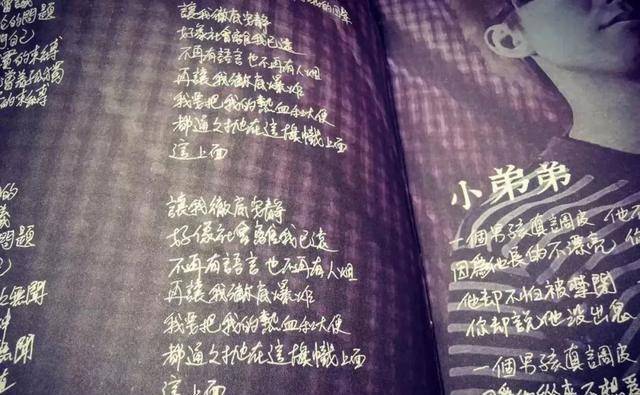 的問題
的束縛
的回聲
讓我徹底安靜
好像社會離我已遠
不再有語言也不再有人烟
再讓我徹底爆炸
我要把我的熱血和大便
都通々抛在這旗幟上面
這上面
的
議
問題
己
無聞
無聞
讓我徹底安靜
好像社會離我已遠
不再有語言也不再有人烟
再讓我徹底爆炸
我要把我的熱血和大便
都通々抛在這旗幟上面
這上面
小弟弟
一個男孩真調皮 他不
因為他長的不漂亮 你
他却不怕被
你却說他沒出息
一個男孩真調皮